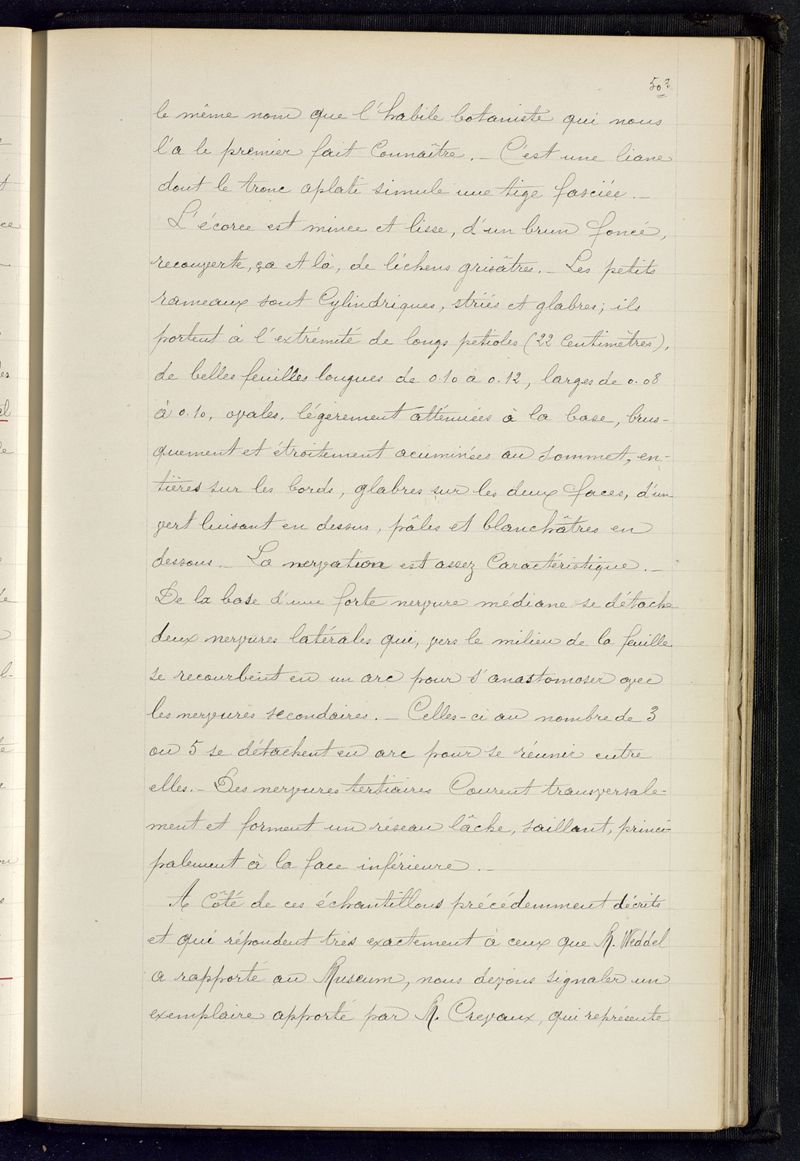 503
le même nom que l'habile botaniste qui nous
l'a le premier fait Connaître. _ C'est une liane
dont le tronc aplati simule une tige fasciée. _
L'écorce est mince et lisse, d'un brun foncé,
recouverte, ça et là, de lichens grisâtres. _ Les petits
rameaux sont Cylindriques, striés et glabres; ils
portent à l'extrémité de longs pétioles (22 Centimètres),
de belles feuilles longues de 0.10 à 0.12, larges de 0.08
à 0.10, ovales, légèrement atténuées à la base, brus-
quement et étroitement acuminées au sommet, en-
tières sur les bords, glabres sur les deux faces, d'un
vert luisant en dessus, pâles et blanchâtres en
dessous. _ La nervation est assez Caractéristique. _
De la base d'une forte nervure médiane se détache
deux nervures latérales qui, vers le milieu de la feuille
se recourbent en un arc pour s'anastomoser avec
les nervures secondaires. _ Celles-ci au nombre de 3
ou 5 se détachent en arc pour se réunir entre
elles. _ Des nervures tertiaires Courent transversale-
ment et forment un réseau lâche, saillant, princi-
palement à la face inférieure. _
A Côté de ces échantillons précédemment décrits
et qui répondent très exactement à ceux que M. Weddel
a rapporté au Museum, nous devons signaler un
exemplaire apporté par M. Crevaux, qui représente